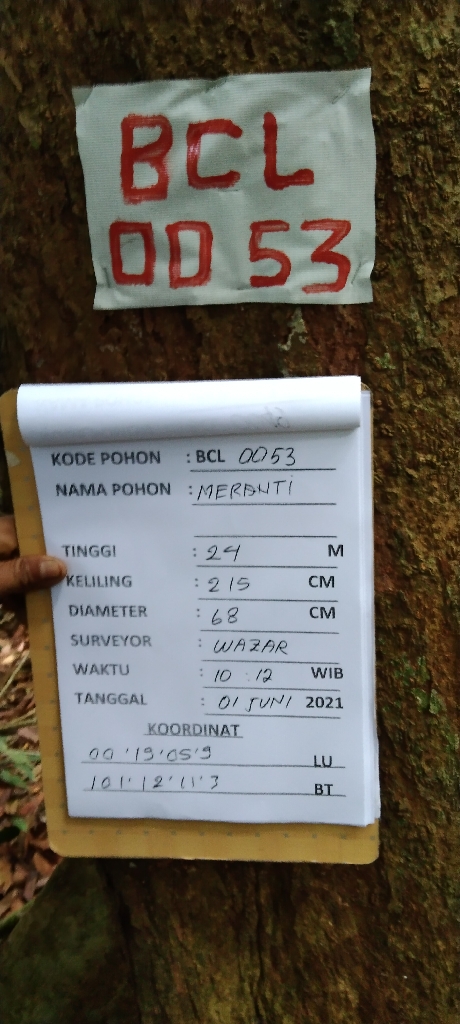 BCL
0053
KODE POHON : BCL 0053
NAMA POHON : MERANTI
TINGGI : 24 M
KELILING : 215 CM
DIAMETER : 68 CM
SURVEYOR : WAZAR
WAKTU : 10 : 12 WIB
TANGGAL : 01 JUNI 2021
KOORDINAT
00'19'05'9 LU
101'12'11'3 BT